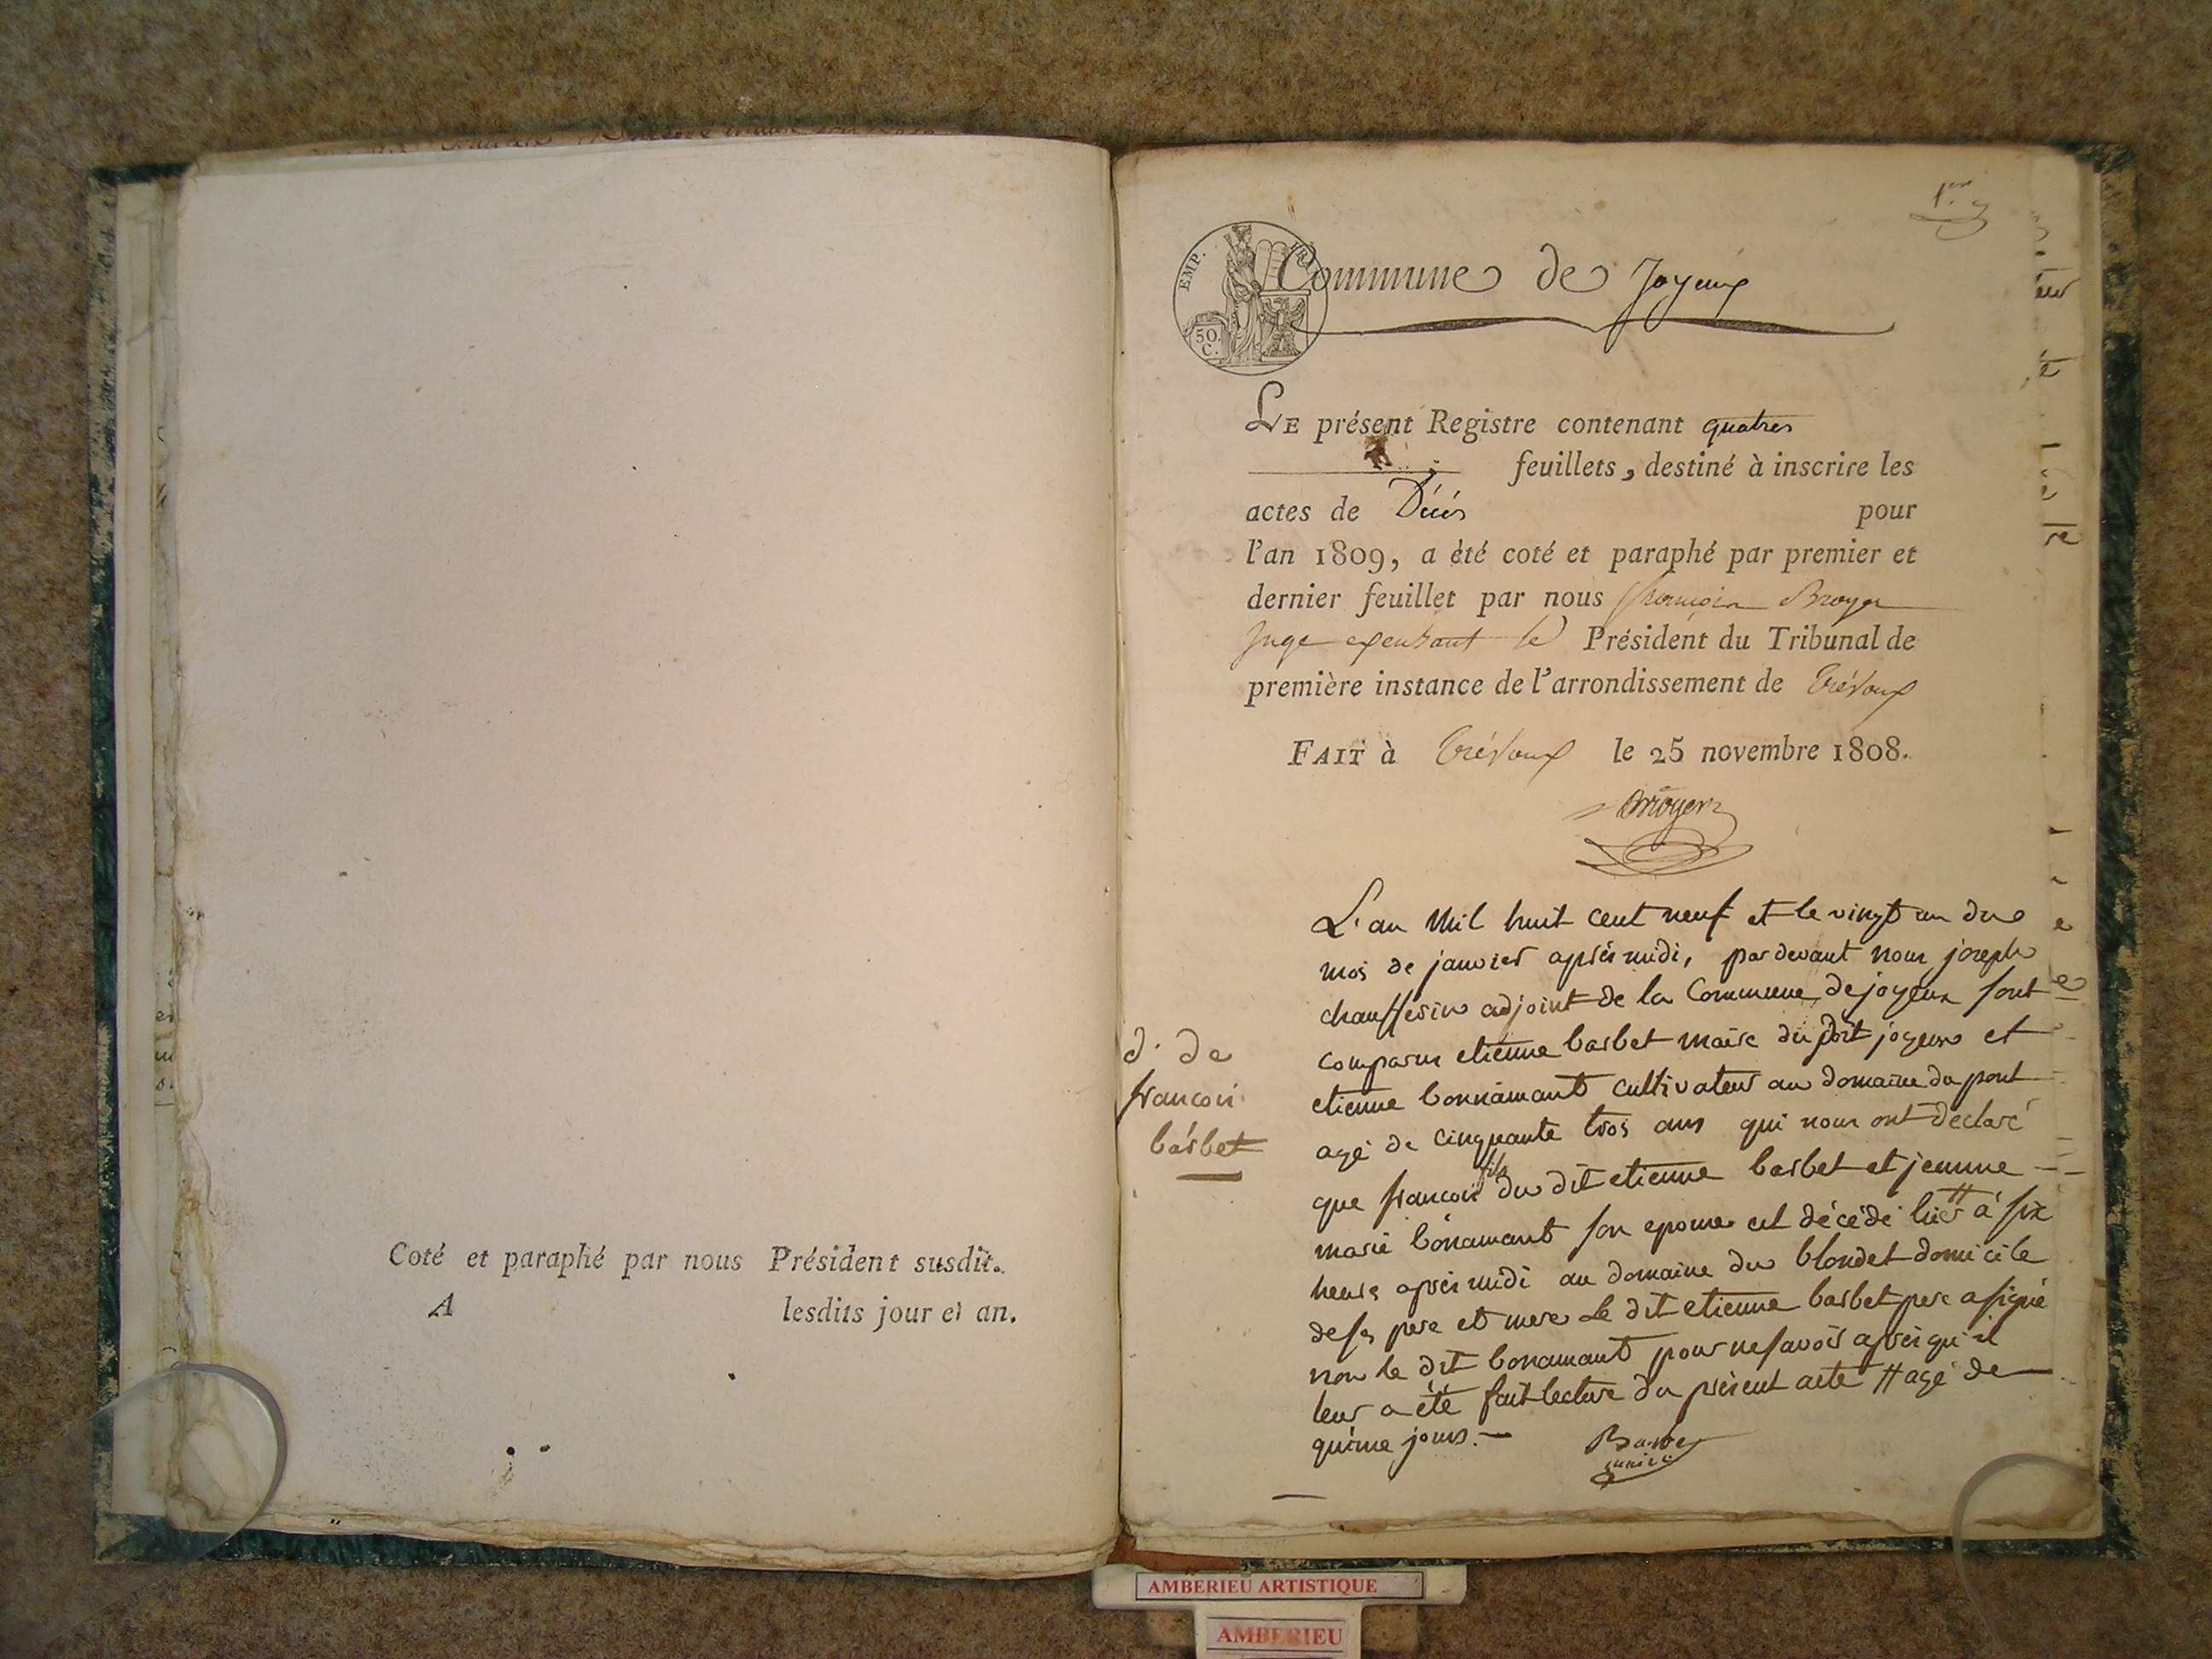 Coté et paraphé par nous Président susdit.
A lesdits jour et an.
1.er
EMP.
50.
C.
Commune de Joyeux
LE présent Registre contenant quatres
feuillets, destiné à inscrire les
actes de Décés pour
l'an 1809, a èté coté et paraphé par premier et
dernier feuillet par nous françois Broyer
Juge exerçant le Président du Tribunal de
première instance de l'arrondissement de Trévoux
FAIT à Trévoux le 25 novembre 1808.
Broyer
d. de
francois
barbet
L'an Mil huit cent neuf et le vingt un du
mois de janvier après midi, par devant nous joseph
adjoint de la Commune de joyeux sont
comparus etienne barbet maire du dit joyeux et
etienne bonnamant cultivateur au domaine du pont
agé de cinquante trois ans qui nous ont déclaré
que francois fils du dit etienne barbet et jeanne
marie bonamant son epouse est décédé hier # à six
heures après midi au domaine du blondet domicile
de ses pere et mere Le dit etienne barbet pere a signé
non le dit bonamant pour ne savoir après qu'il
leur a été fait lecture du présent acte # agé de
quinze jours.
Barbet
maire
AMBERIEU ARTISTIQUE
AMBERIEU